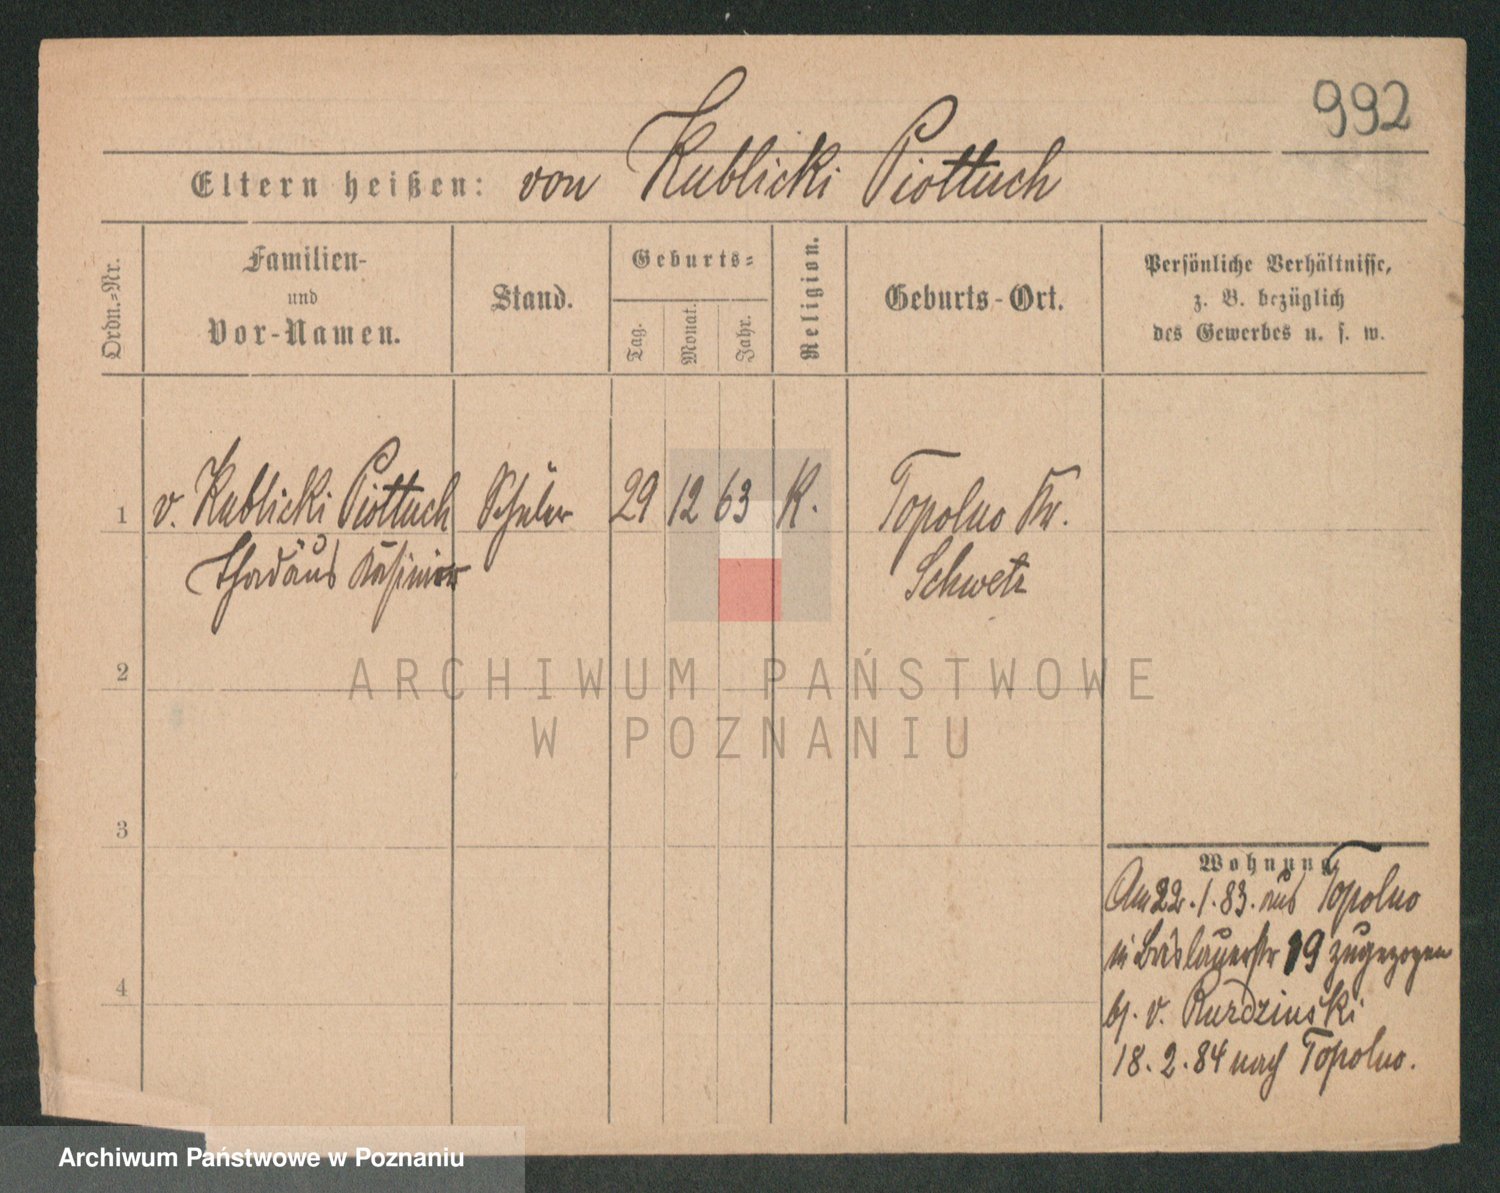 992
Eltern heißen: von Kublicki Piottuch
Ordn.-Nr.
Familien-
und
Vor-Namen.
Stand.
Geburts-
Tag.
Monat.
Jahr.
Religion.
Geburts-Ort.
Persönliche Verhältnisse,
z. B. bezüglich
des Gewerbes u. s. w.
1 v. Kublicki Piottuch Schüler 29 12 63 K. Topolno Kr.
Thadäus Kasimir Schwetz
2
3
4
Wohnung
Am 22.1.83. aus Topolno
in Breslauerstr 19 zugezogen
bj. v. Rurdzinski
18.2.84 nach Topolno.
ARCHIWUM PAŃSTWOWE
W POZNANIU
Archiwum Państwowe w Poznaniu